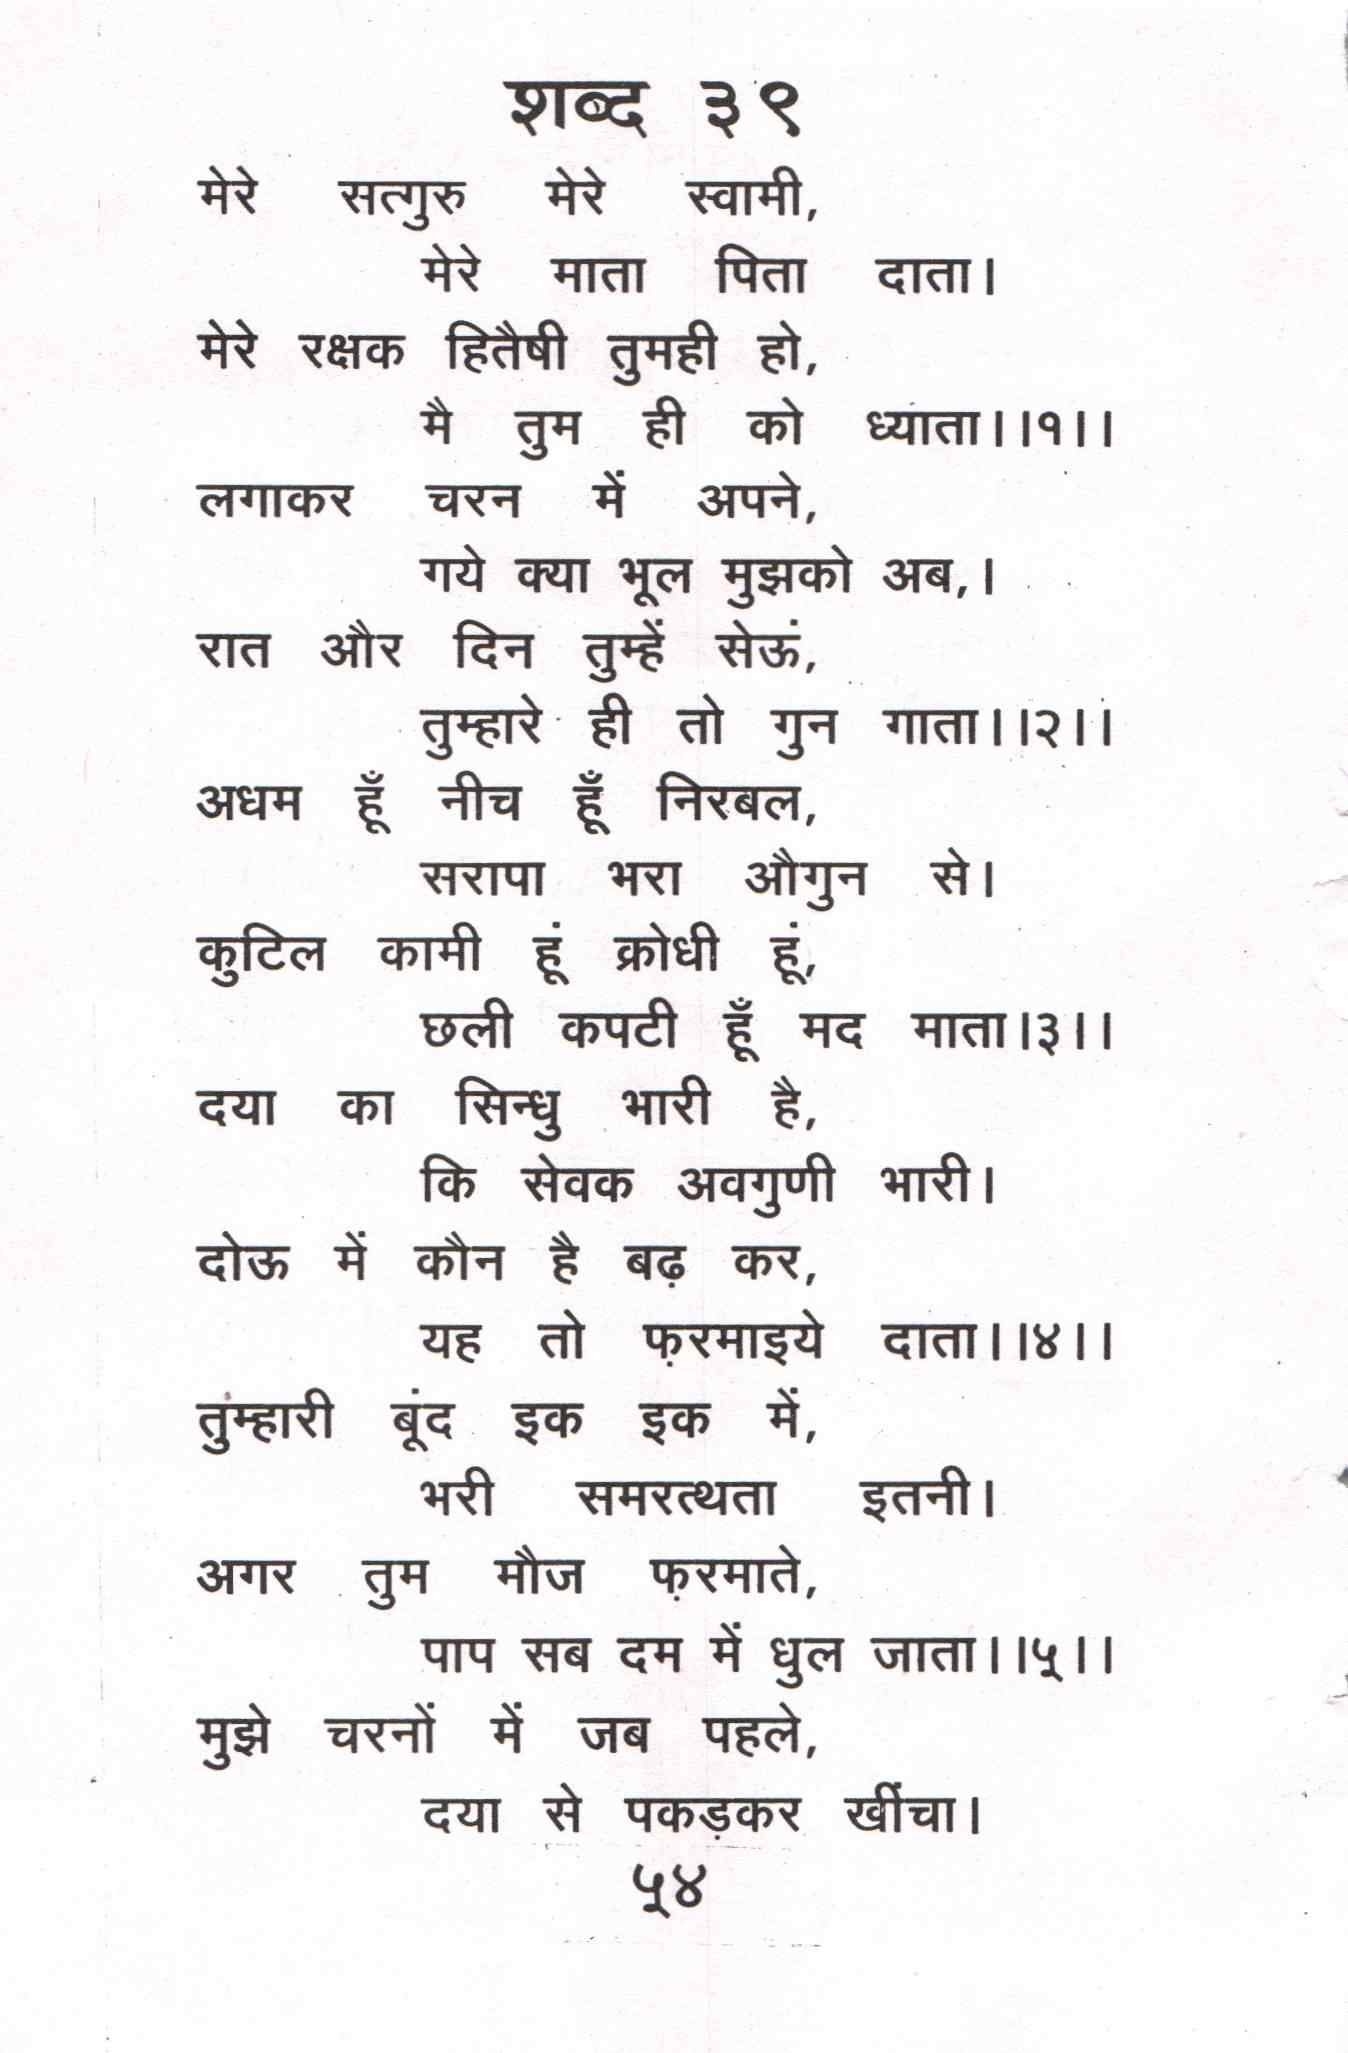 शब्द ३९
मेरे सत्गुरु मेरे स्वामी,
मेरे माता पिता दाता।
मेरे रक्षक हितैषी तुमही हो,
मै तुम ही को ध्याता।।१।।
लगाकर चरन में अपने,
गये क्या भूल मुझको अब,।
रात और दिन तुम्हें सेऊं,
तुम्हारे ही तो गुन गाता।।२।।
अधम हूँ नीच हूँ निरबल,
सरापा भरा औगुन से।
कुटिल कामी हूं क्रोधी हूं,
छली कपटी हूँ मद माता।३।।
दया का सिन्धु भारी है,
कि सेवक अवगुणी भारी।
दोऊ में कौन है बढ़ कर,
यह तो फ़रमाइये दाता।।४।।
तुम्हारी बूंद इक इक में,
भरी समरत्थता इतनी।
अगर तुम मौज फ़रमाते,
पाप सब दम में धुल जाता।।५।।
मुझे चरनों में जब पहले,
दया से पकड़कर खींचा।
५४